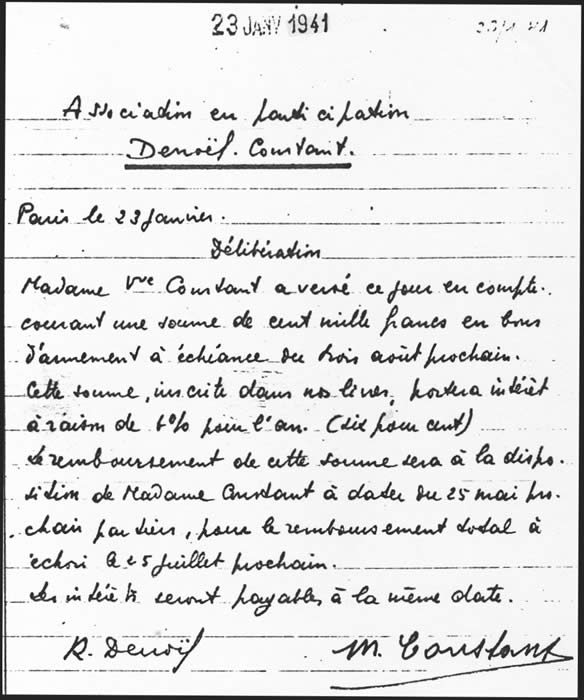 23 JANV 1941
23/1 41
Association en participation
Denoël. Constant.
Paris le 23 janvier.
Délibération
Madame Vve Constant a versé ce jour en compte.
courant une somme de cent mille francs en bons
d'armement à échéance du trois août prochain.
Cette somme, inscrite dans nos livres, portera intérêt
à raison de 6% pour l'an. (six pour cent)
Le remboursement de cette somme sera à la dispo-
sition de Madame Constant à dater du 25 mai pro-
chain par tiers, pour le remboursement total à
échoir le 25 juillet prochain.
Les intérêts seront payables à la même date.
R. Denoël
M. Constant